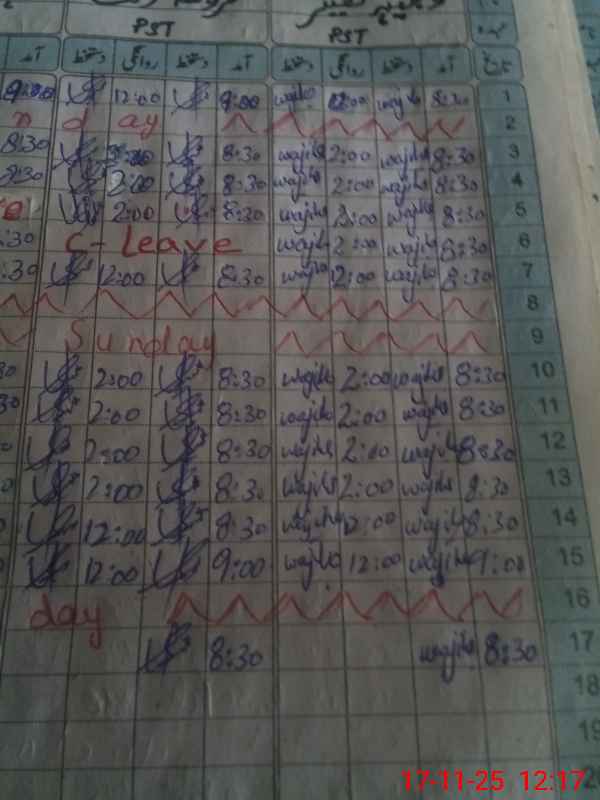 PST PST
آمد دستخط روانگی دستخط آمد دستخط روانگی دستخط آمد تاریخ
9:00 12:00 9:00 wajiha 12:00 wajiha 8:30 1
n d ay 2
8:30 2:00 8:30 wajiha 2:00 wajiha 8:30 3
8:30 2:00 8:30 wajiha 2:00 wajiha 8:30 4
2:00 8:30 wajiha 2:00 wajiha 8:30 5
:30 C-Leave wajiha 2:00 wajiha 8:30 6
:30 12:00 8:30 wajiha 12:00 wajiha 8:30 7
8
Sunday 9
30 2:00 8:30 wajiha 2:00 wajiha 8:30 10
30 2:00 8:30 wajiha 2:00 wajiha 8:30 11
2:00 8:30 wajiha 2:00 wajiha 8:30 12
2:00 8:30 wajiha 2:00 wajiha 8:30 13
12:00 8:30 wajiha 12:00 wajiha 8:30 14
12:00 9:00 wajiha 12:00 wajiha 9:00 15
day 16
8:30 wajiha 8:30 17
18
19
20
17-11-25 12:17